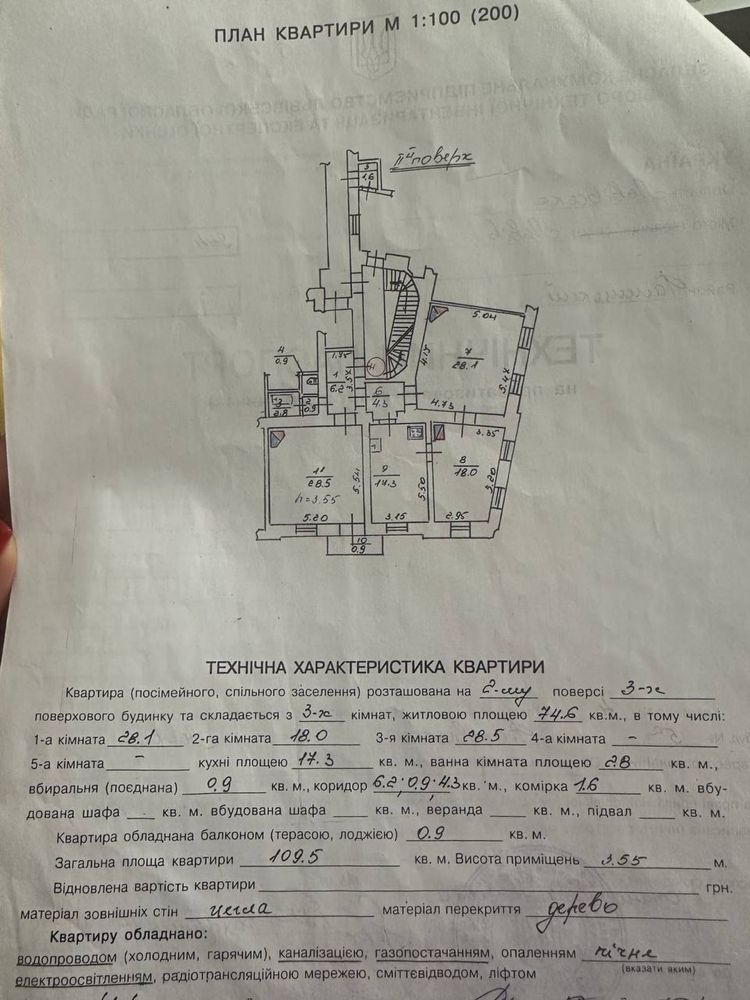 ПЛАН КВАРТИРИ М 1:100 (200)
II поверх
5
1.6
5.04
4.15
7
28.1
5.47
4.73
4
0.9
1.75
1
6.2
3.57
3
2.8
2
0.9
6
4.3
3.35
11
28.5
h=3.55
5.54
5.20
9
17.3
5.50
3.15
8
18.0
5.20
2.95
10
0.9
ТЕХНІЧНА ХАРАКТЕРИСТИКА КВАРТИРИ
Квартира (посімейного, спільного заселення) розташована на 2-му поверсі 3-х
поверхового будинку та складається з 3-х кімнат, житловою площею 74.6 кв.м., в тому числі:
1-а кімната 28.1 2-га кімната 18.0 3-я кімната 28.5 4-а кімната -
5-а кімната - кухні площею 17.3 кв. м., ванна кімната площею 28 кв. м.,
вбиральня (поєднана) 0.9 кв. м., коридор 6.2; 0.9; 4.3 кв. м., комірка 1.6 кв. м. вбу-
дована шафа кв. м. вбудована шафа кв. м., веранда кв. м., підвал кв. м.
Квартира обладнана балконом (терасою, лоджією) 0.9 кв. м.
Загальна площа квартири 109.5 кв. м. Висота приміщень 3.55 м.
Відновлена вартість квартири грн.
матеріал зовнішніх стін цегла матеріал перекриття дерево
Квартиру обладнано:
водопроводом (холодним, гарячим), каналізацією, газопостачанням, опаленням пічне
(вказати яким)
електроосвітленням, радіотрансляційною мережею, сміттєвідводом, ліфтом